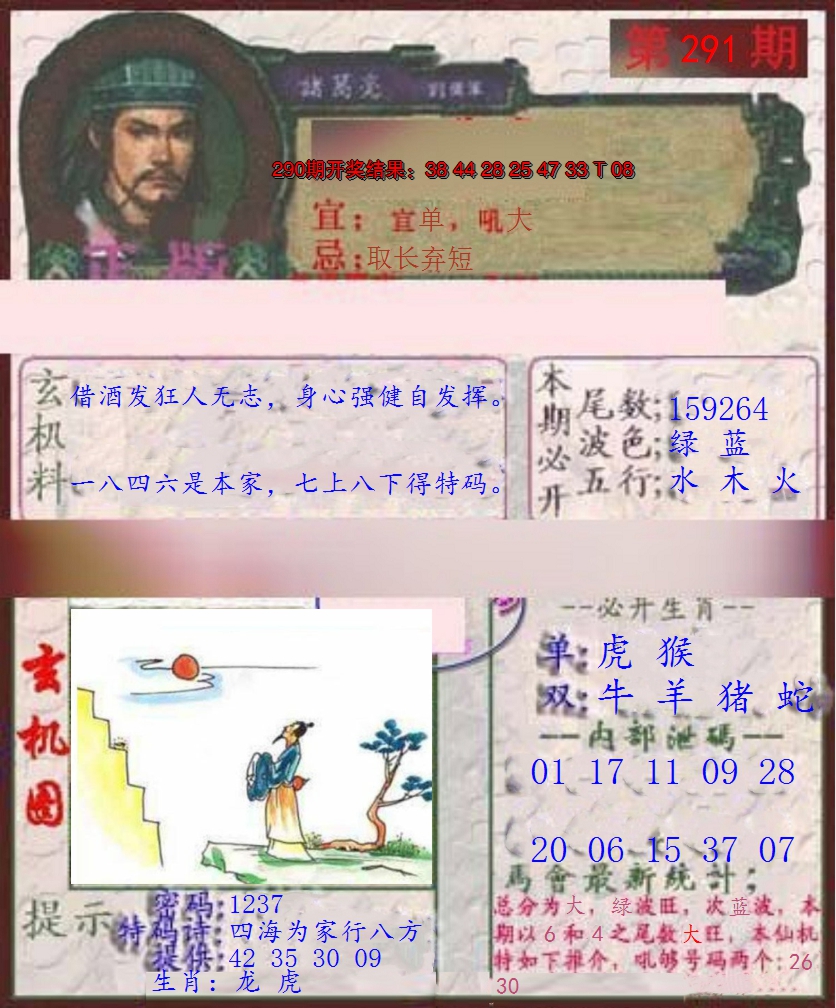 第 291 期
諸葛亮
290期开奖结果：38 44 28 25 47 33 T 08
宜：宜单，吼大
忌：取长弃短
正版
玄机料
借酒发狂人无志，身心强健自发挥。
一八四六是本家，七上八下得特码。
本期必开
尾数;159264
波色;绿 蓝
五行;水 木 火
玄机图
--必开生肖--
单:虎 猴
双:牛 羊 猪 蛇
--内部泄碼--
01 17 11 09 28
20 06 15 37 07
馬會最新統計;
总分为大，绿波旺，次蓝波，本
期以6和4之尾数大旺，本仙机
特如下推介，吼够号码两个:26
30
提示
密码:1237
特码诗:四海为家行八方
提供:42 35 30 09
生肖：龙 虎